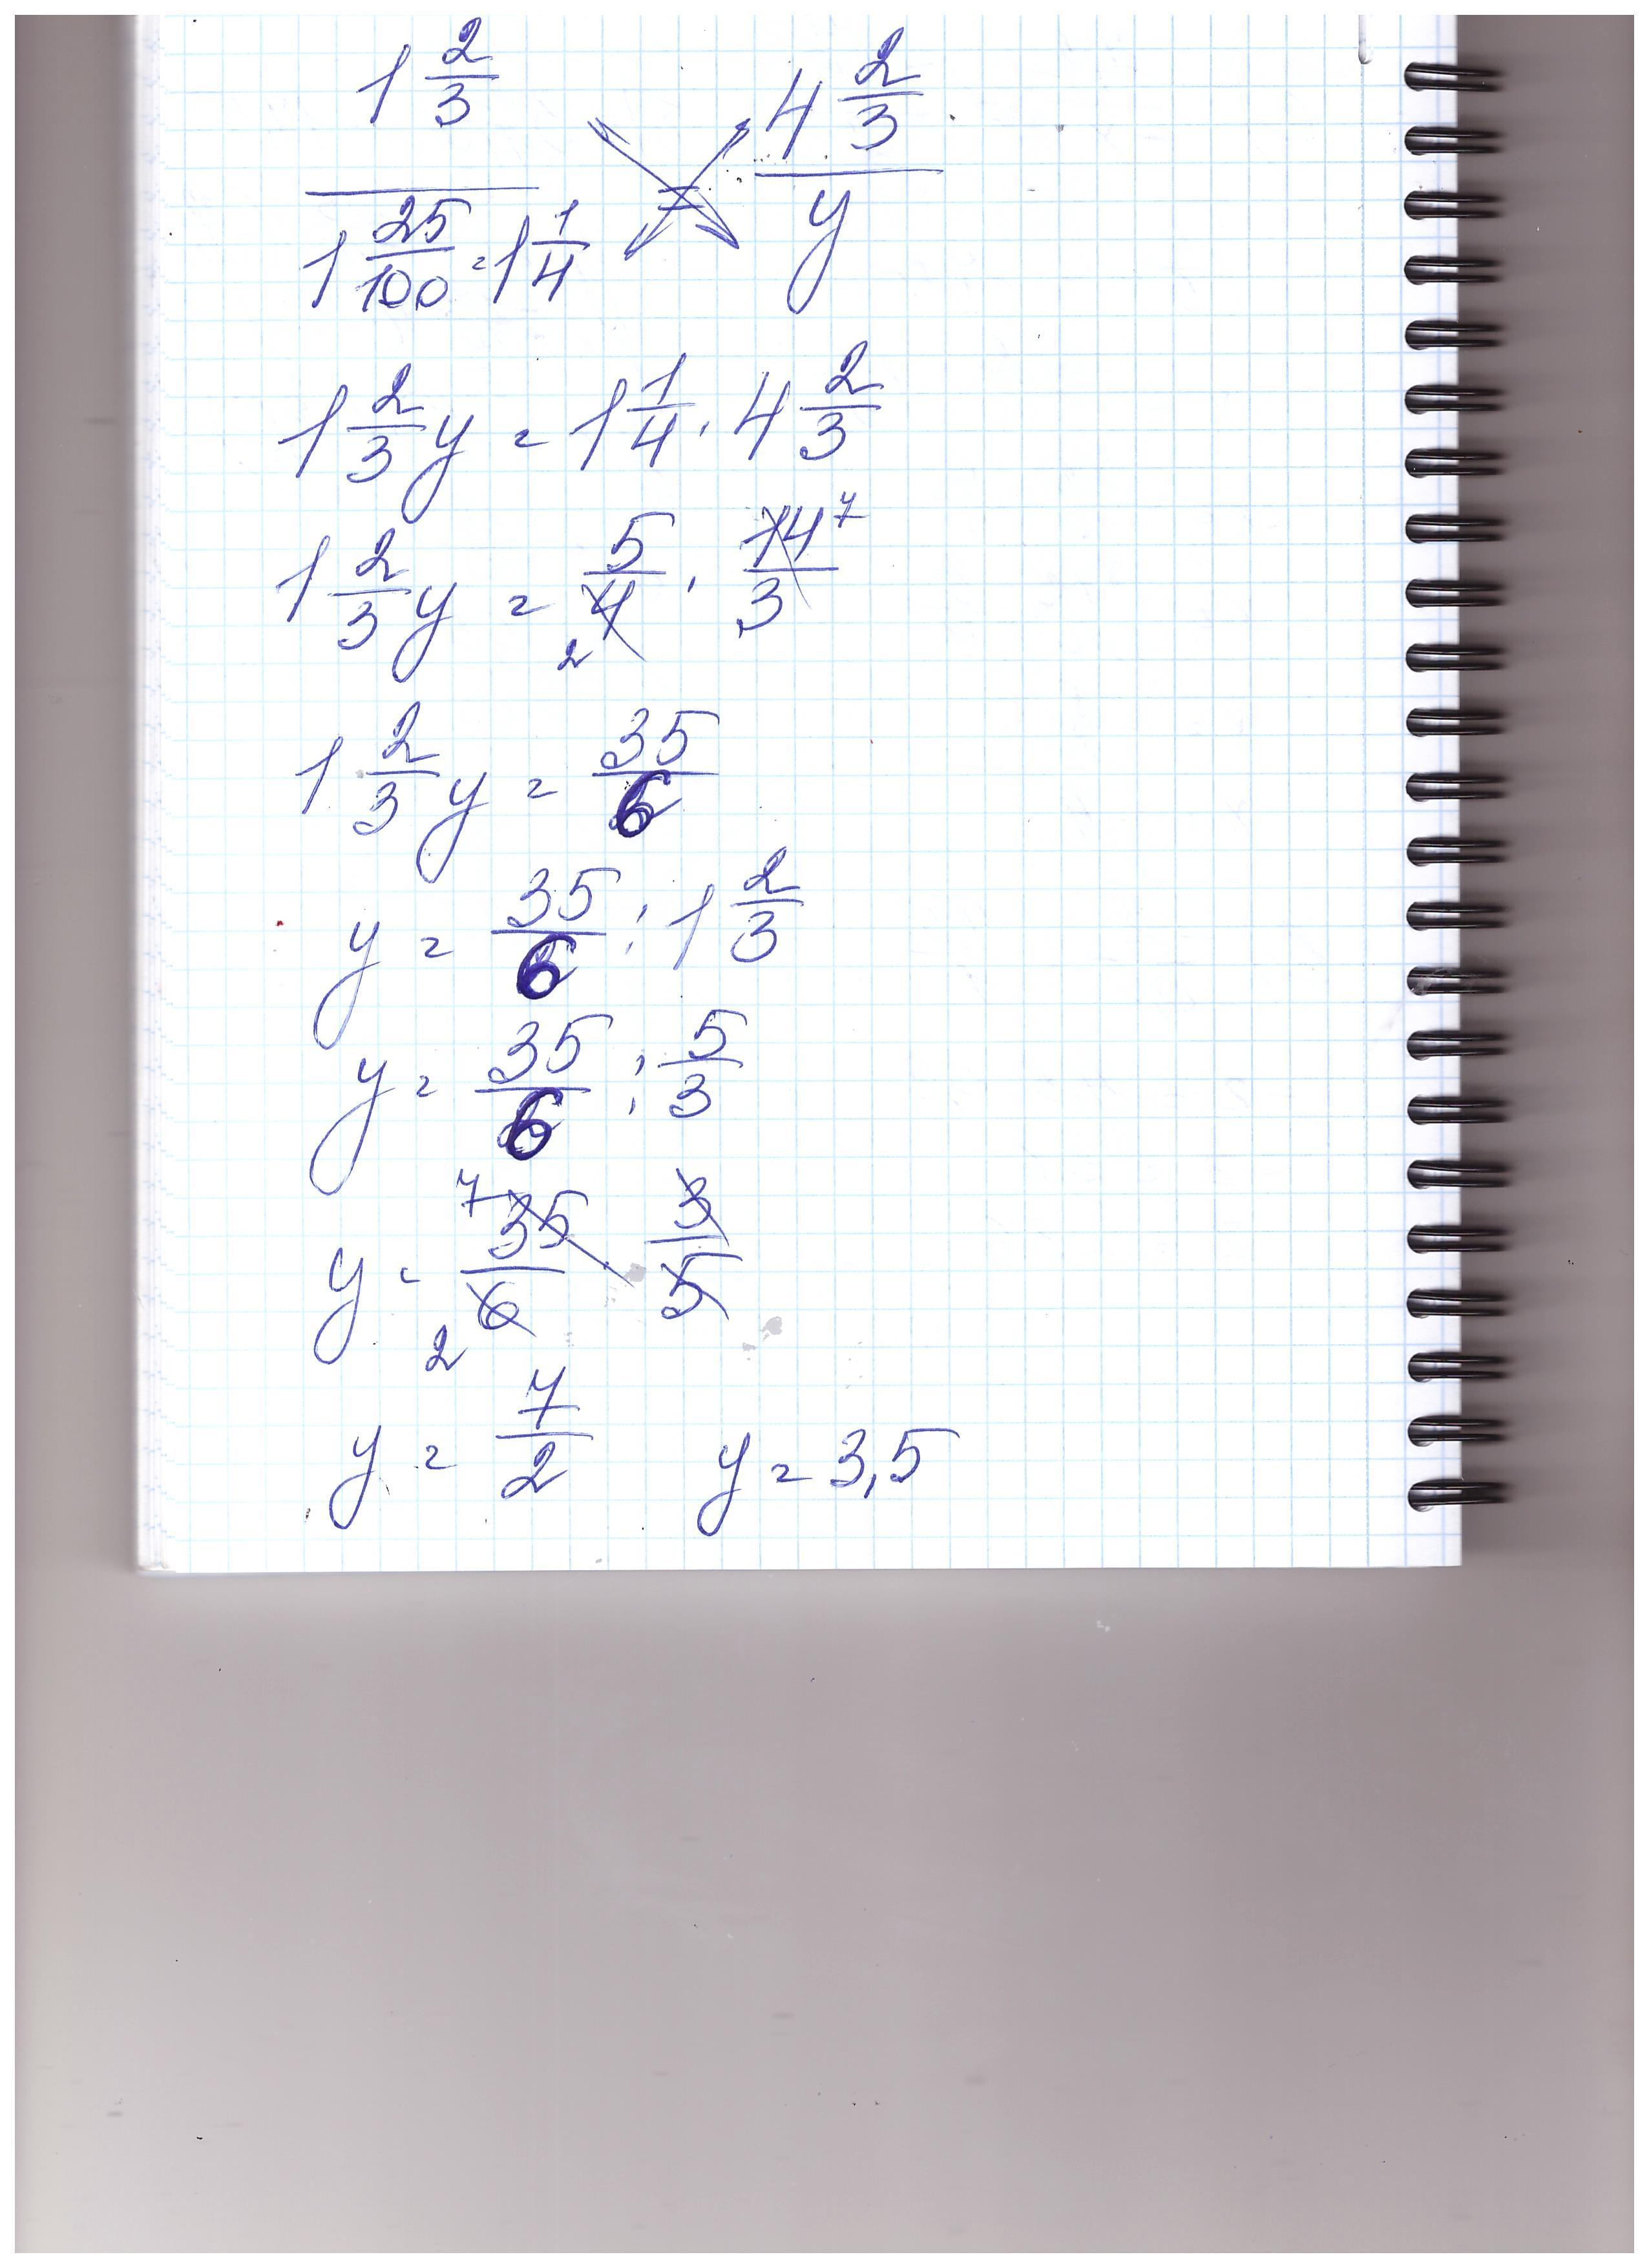 1 2/3 / 1 25/100 = 1 1/4 = 4 2/3 / y
1 2/3 y = 1 1/4 · 4 2/3
1 2/3 y = 5/4 · 14/3 7 2
1 2/3 y = 35/6
y = 35/6 : 1 2/3
y = 35/6 : 5/3
y = 7 35/6 · 3/5 2
y = 7/2 y = 3,5